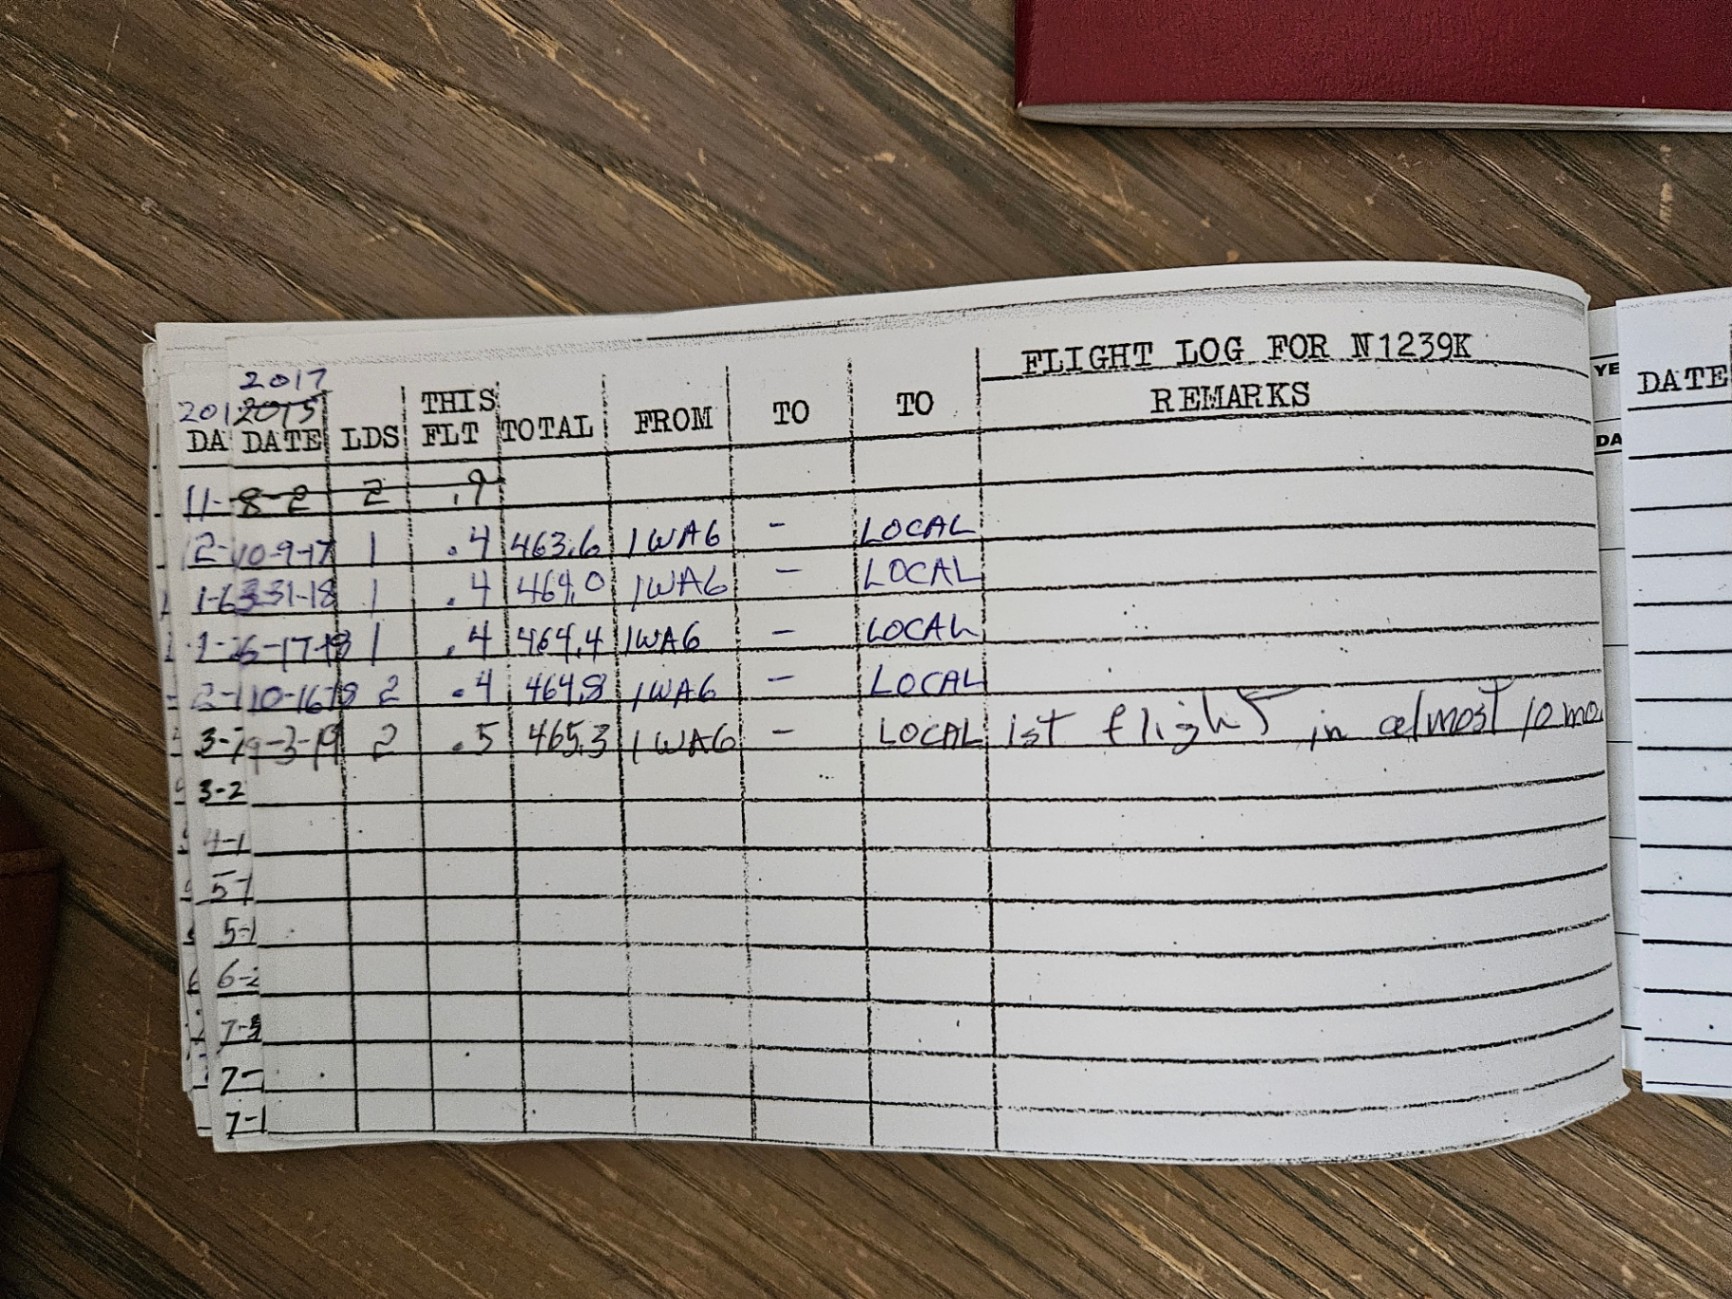 FLIGHT LOG FOR N1239K
2017
201 2015
DA DATE LDS THIS FLT TOTAL FROM TO TO REMARKS
11- 8-2 2 .9
2- 10-9-17 1 .4 463.6 1WA6 - LOCAL
1-6 3-31-18 1 .4 464.0 1WA6 - LOCAL
6-17-18 1 .4 464.4 1WA6 - LOCAL
2-1 10-16-18 2 .4 464.8 1WA6 - LOCAL
3- 9-3-19 2 .5 465.3 1WA6 - LOCAL 1st flight in almost 10 mo.
3-2
4-1
5-1
5-1
6-2
7-
7-
7-1
YE
DA
DATE